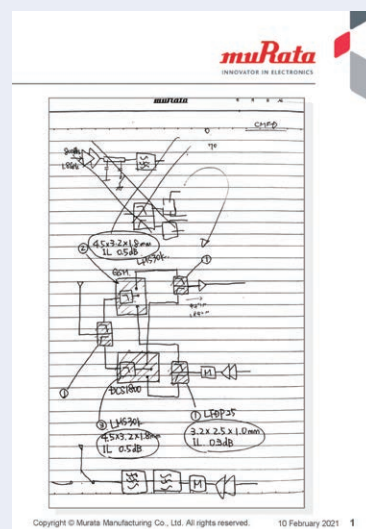 muRata
INNOVATOR IN ELECTRONICS
muRata
②
4.5x3.2x1.8mm
IL 0.5dB
LHS30K
GSM
①
①
DCS1800
M
② LHS30K
4.5x3.2x1.8mm
IL 0.5dB
① LFDP25
3.2x2.5x1.0mm
IL 0.3dB
M
Copyright © Murata Manufacturing Co., Ltd. All rights reserved.
10 February 2021
1